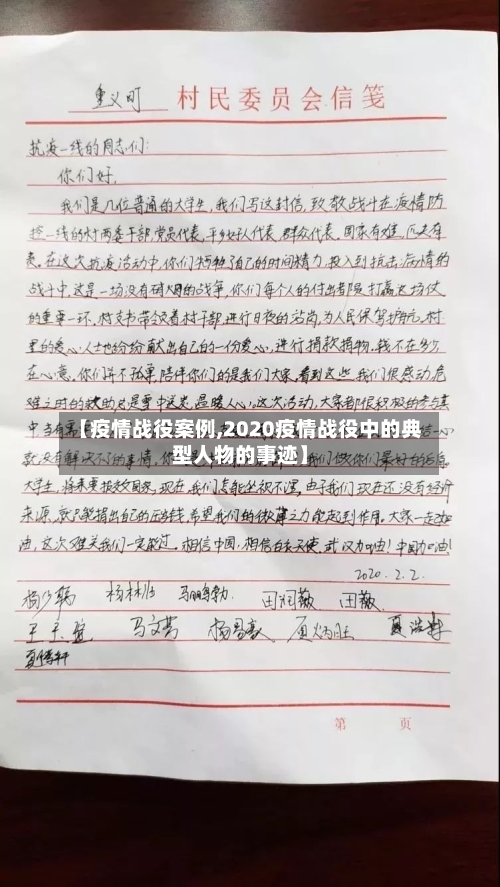 重义町 村民委员会信笺
抗疫一线的同志们:
你们好,
我们是几位普通的大学生,我们写这封信,致敬战斗在疫情防
控一线的村两委干部,党员代表,平乡好人代表,群众代表。国家有难,匹夫有
责。在这次抗疫活动中,你们牺牲了自己的时间精力,投入到抗击病情的
战斗中,这是一场没有硝烟的战争,你们每个人的付出都是打赢这场仗
的重要一环,村支书带领着村干部,进行日夜的站岗,为人民保驾护航,村
里的爱心人士也纷纷献出自己的一份爱心,进行捐款捐物,钱不在多少
在心意,你们并不孤单,陪伴你们的是我们大家,看到这些我们很感动,危
难之时的救助总是雪中送炭,温暖人心,这次活动,大家都很积极的参与其
中
【疫情战役案例,2020疫情战役中的典
型人物的事迹】
就没有解决不了的事情,你 我们做你们最好的后盾。
大学生,将来要报效国家,现在,我们虽能坐视不理,由于我们现在还没有经济
来源,就只能捐出自己的压岁钱,希望我们的微薄之力能起到作用。大家一起加
油,这次难关我们一定能过。相信中国,相信白衣天使,武汉加油!中国加油!
2020.2.2.
杨林 马鹏勃 田润薇 田薇
马文 杨昌 
第 页